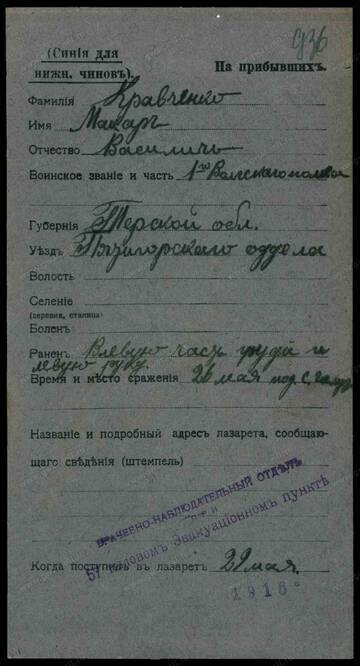 936
(Синія для
нижн. чиновъ).
На прибывшихъ.
Фамилія Кравченко
Имя Макаръ
Отчество Василичъ
Воинское званіе и часть 1го Волгскаго полка
Губернія Терской обл.
Уѣздъ Пятигорскаго отдела
Волость
Селеніе
(деревня, станица)
Боленъ
Раненъ В левую часть груди и
левую руку.
Время и мѣсто сраженія 26 мая под с.
Названіе и подробный адресъ лазарета, сообщаю-
щаго свѣдѣнія (штемпель)
ВРАЧЕБНО-НАБЛЮДАТЕЛЬНЫЙ ОТДѢЛЪ
при
57 головномъ Эвакуаціонномъ пунктѣ
Когда поступилъ въ лазаретъ 29 мая.
1916